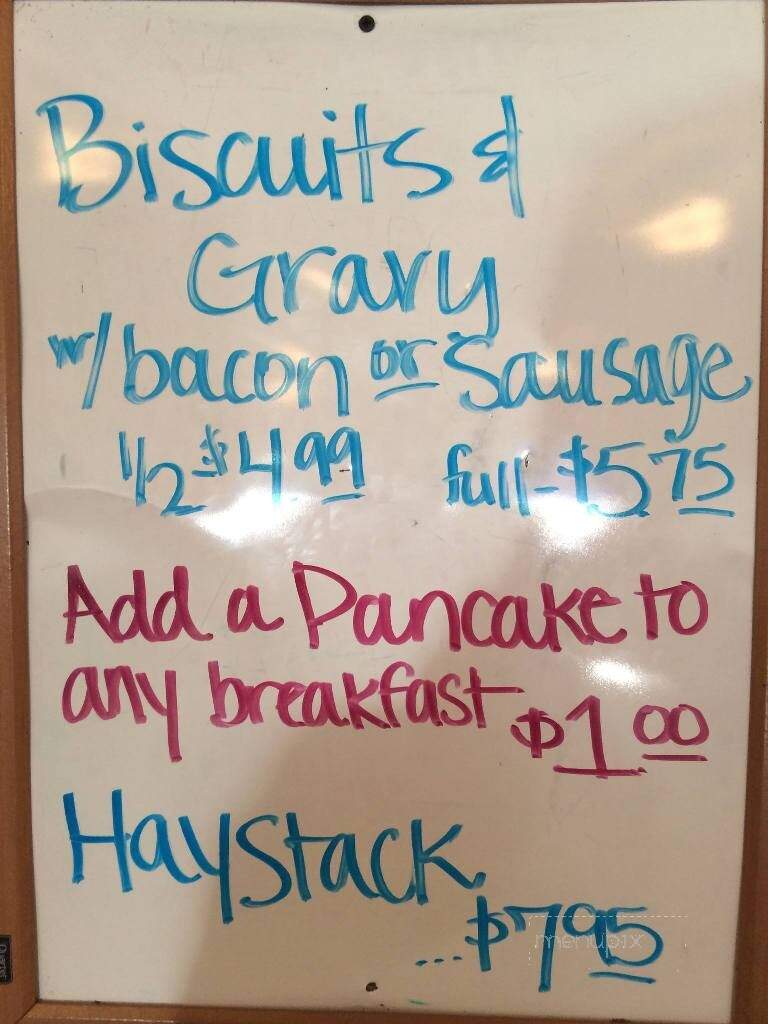 Biscuits &
Gravy
w/ bacon or Sausage
1/2 - $4.99 full - $5.75
Add a Pancake to
any breakfast $1.00
Haystack
... $7.95
menupix
Quartet